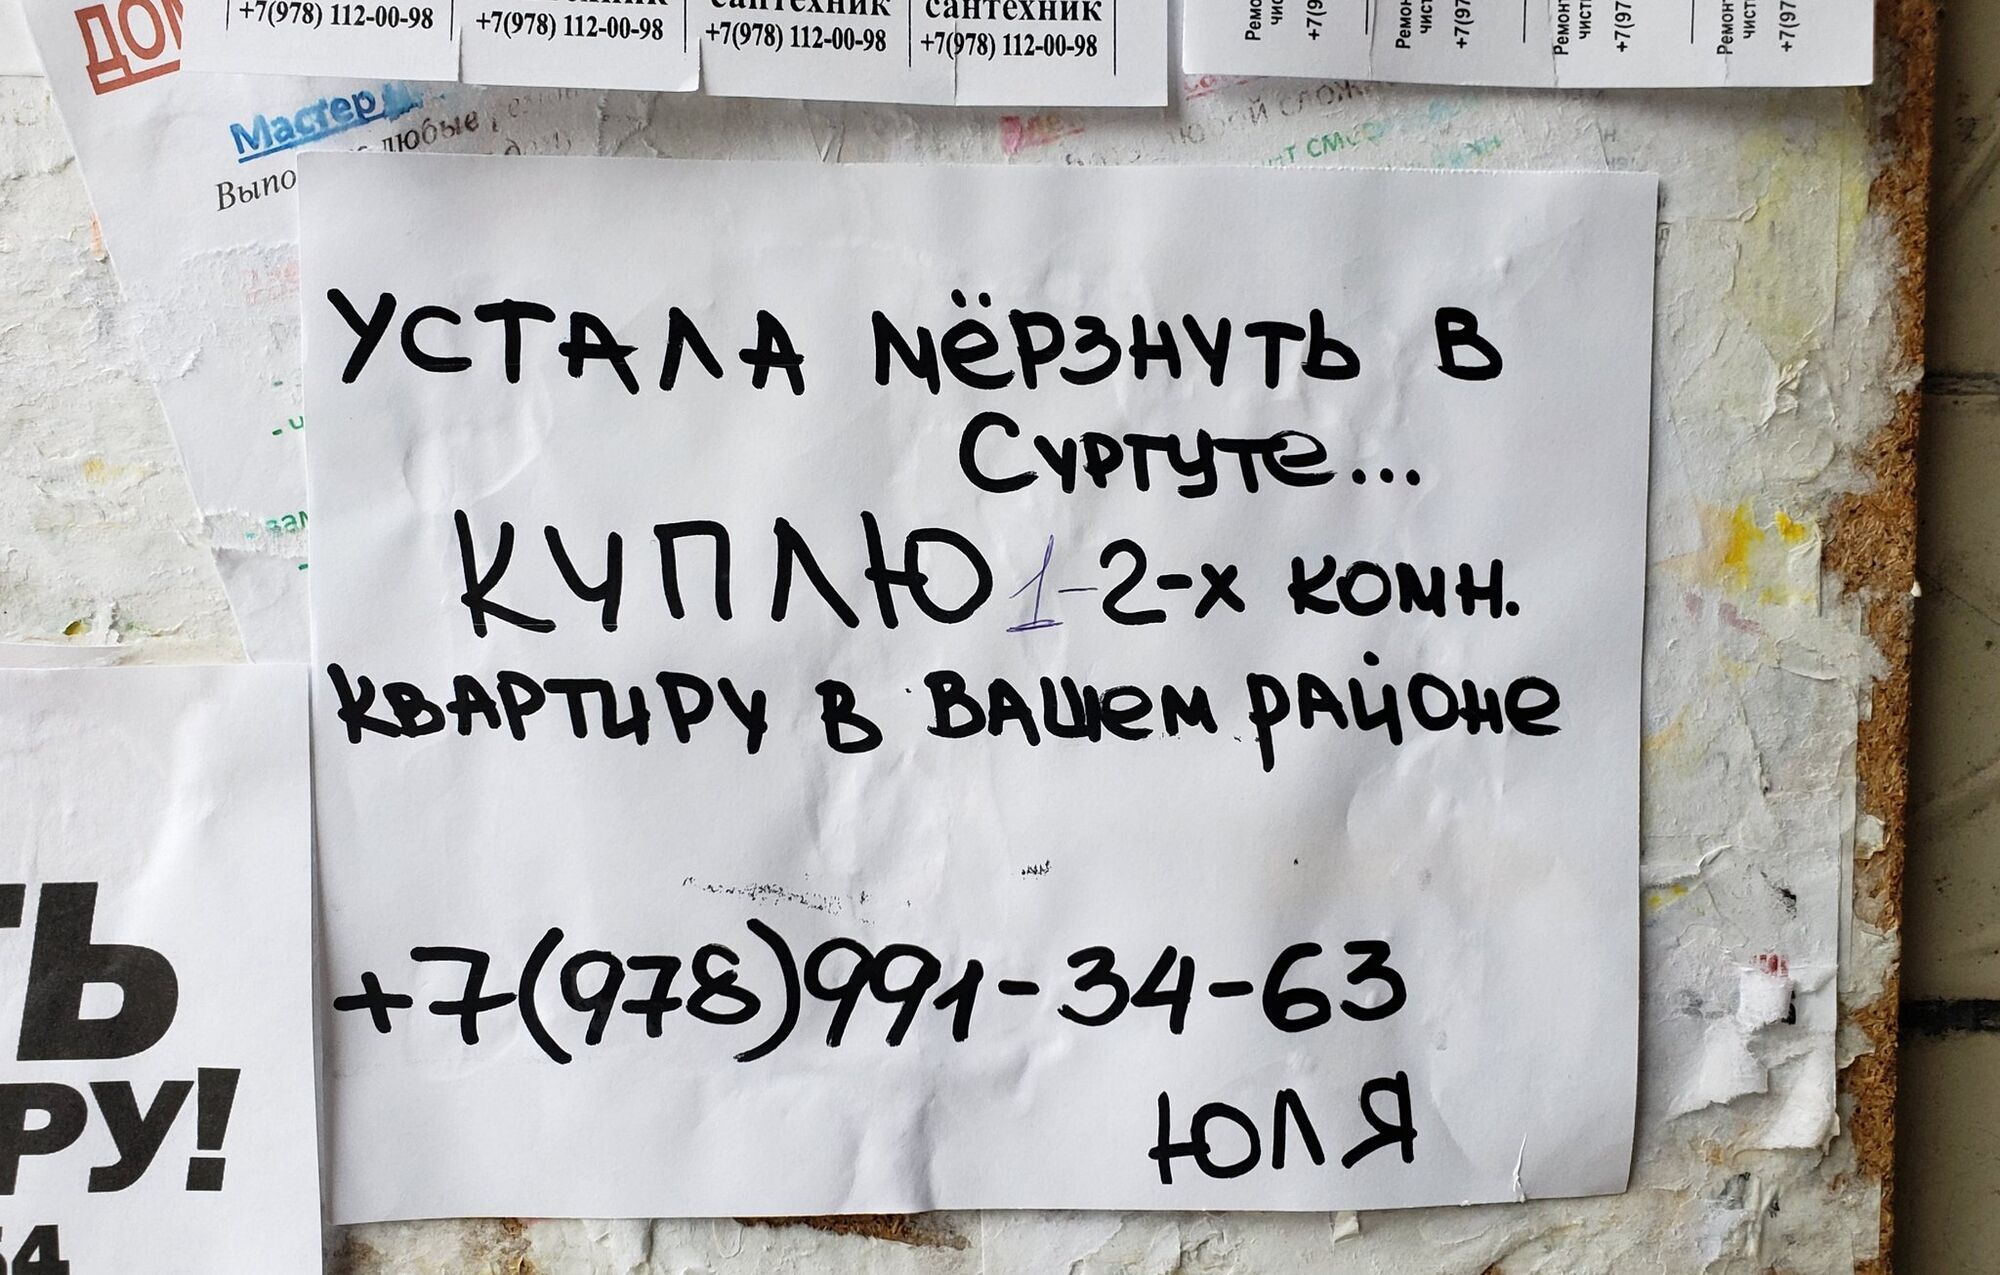 ДОМ
+7(978) 112-00-98
+7(978) 112-00-98
сантехник
+7(978) 112-00-98
сантехник
+7(978) 112-00-98
Ремонт
чист
+7(9
Ремонт
чист
+7(97
Ремонт
чист
+7(97
Ремонт
чист
+7(97
Мастер
любые
Выпо
УСТАЛА МЁРЗНУТЬ В
СУРГУТЕ...
КУПЛЮ 1-2-х КОМН.
КВАРТИРУ В ВАШЕМ РАЙОНЕ
+7(978)991-34-63
ЮЛЯ
ТЬ
РУ!
54